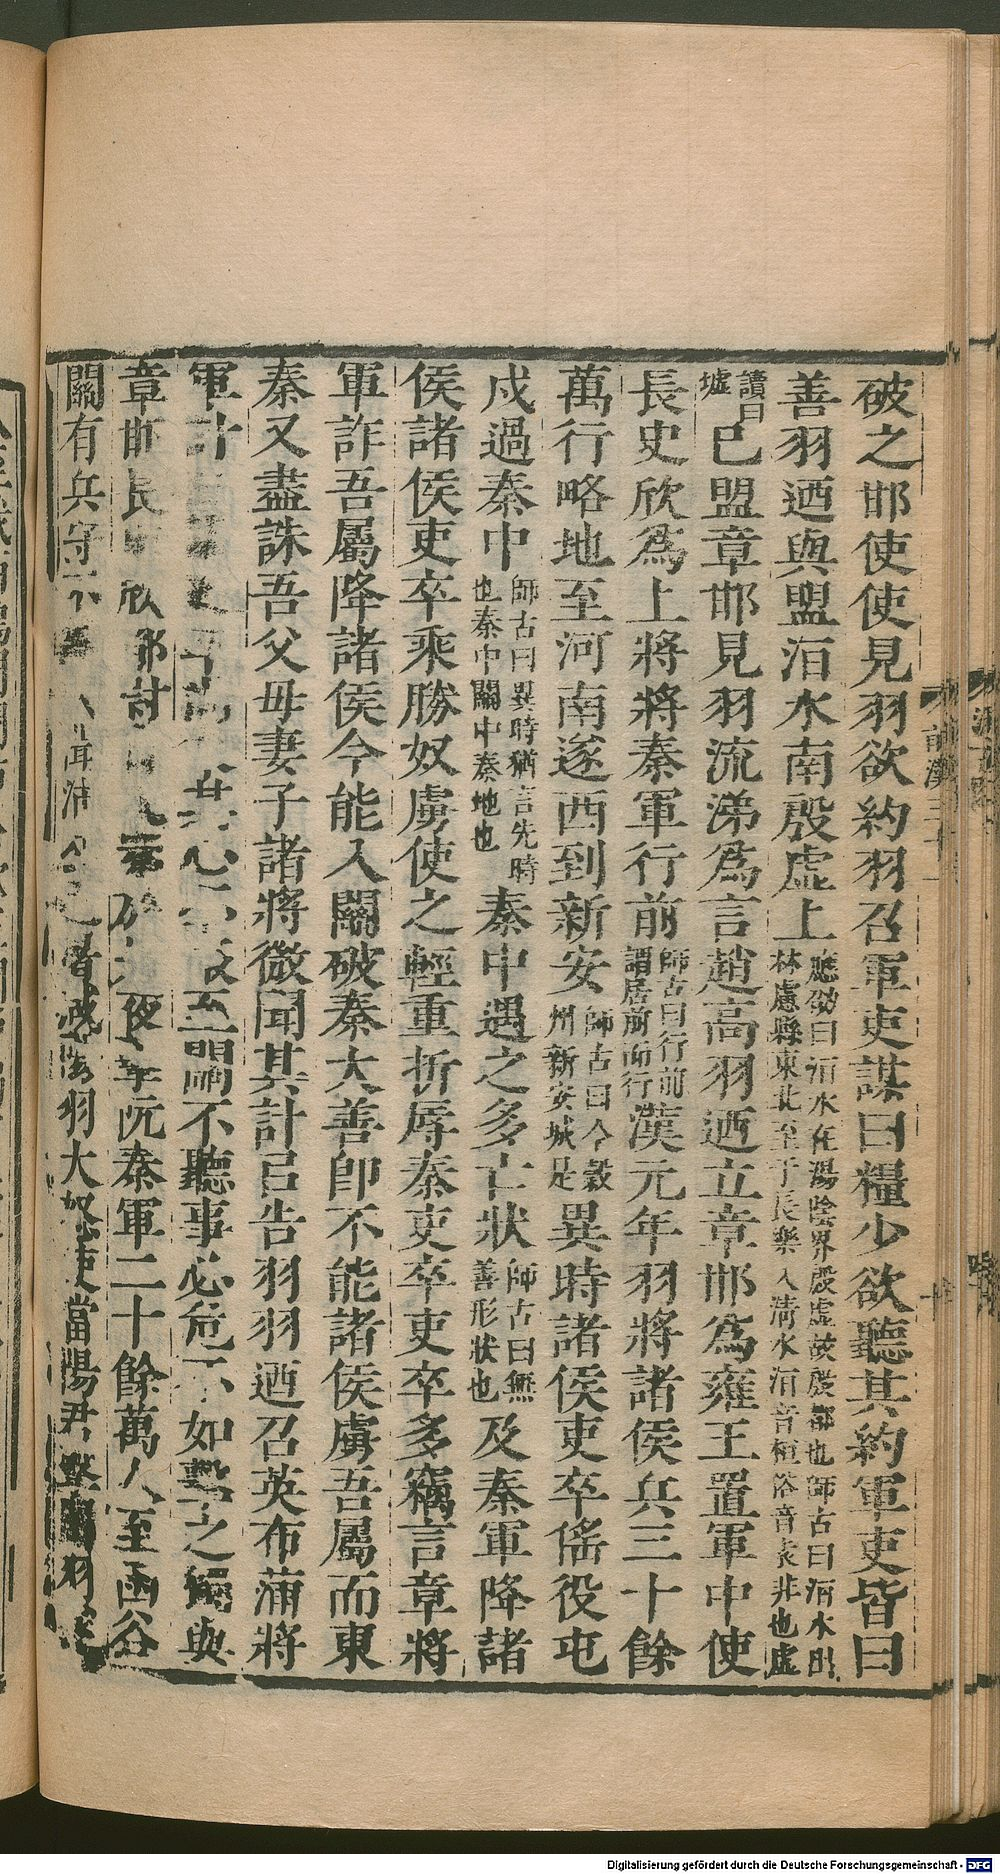 破之邯使使見羽欲約羽召軍吏謀曰糧少欲聽其約軍吏皆曰
善羽迺與盟洹水南殷虛上應劭曰洹水在湯陰界殷虛故殷都也師古曰洹水出林慮縣東北至于長樂入淸水洹音桓俗音袁非也虛
讀曰墟已盟章邯見羽流涕爲言趙高羽迺立章邯爲雍王置軍中使
長史欣爲上將將秦軍行前師古曰行前謂居前而行漢元年羽將諸侯兵三十餘
萬行略地至河南遂西到新安師古曰今穀州新安城是異時諸侯吏卒徭役屯
戍過秦中師古曰異時猶言先時也秦中關中秦地也秦中遇之多亡狀師古曰無善形狀也及秦軍降諸
侯諸侯吏卒乘勝奴虜使之輕重折辱秦吏卒吏卒多竊言章將
軍詐吾屬降諸侯今能入關破秦大善卽不能諸侯虜吾屬而東
秦又盡誅吾父毋妻子諸將微聞其計㠯告羽羽迺召英布蒲將
軍計 心不 至關不聽事必危不如擊之獨與
章邯長 欣 夜擊阬秦軍二十餘萬人至函谷
關有兵守不 聞沛公已 咸陽羽大怒使當陽君擊關羽
前漢三十一
Digitalisierung gefördert durch die Deutsche Forschungsgemeinschaft - DFG